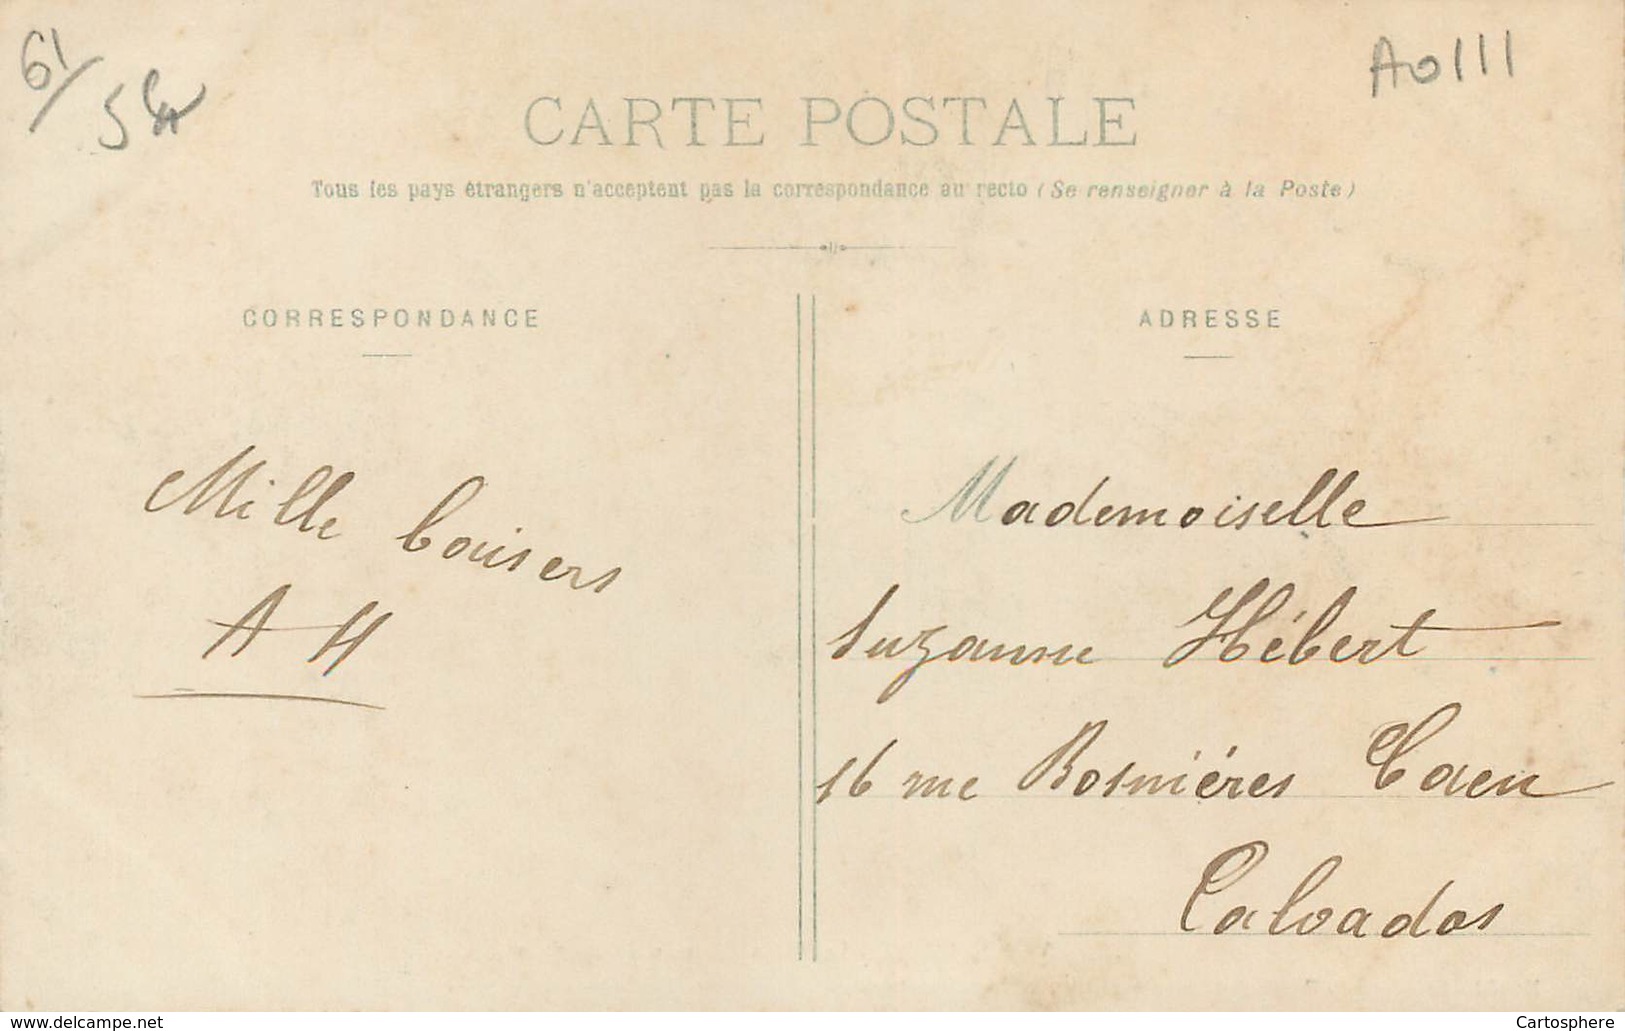 61/
5
A0111
CARTE POSTALE
Tous les pays étrangers n'acceptent pas la correspondance au recto (Se renseigner à la Poste)
CORRESPONDANCE
Mille baisers
A H
ADRESSE
Mademoiselle
Suzanne Hébert
16 rue Bosnières Caen
Calvados
www.delcampe.net
Cartosphere